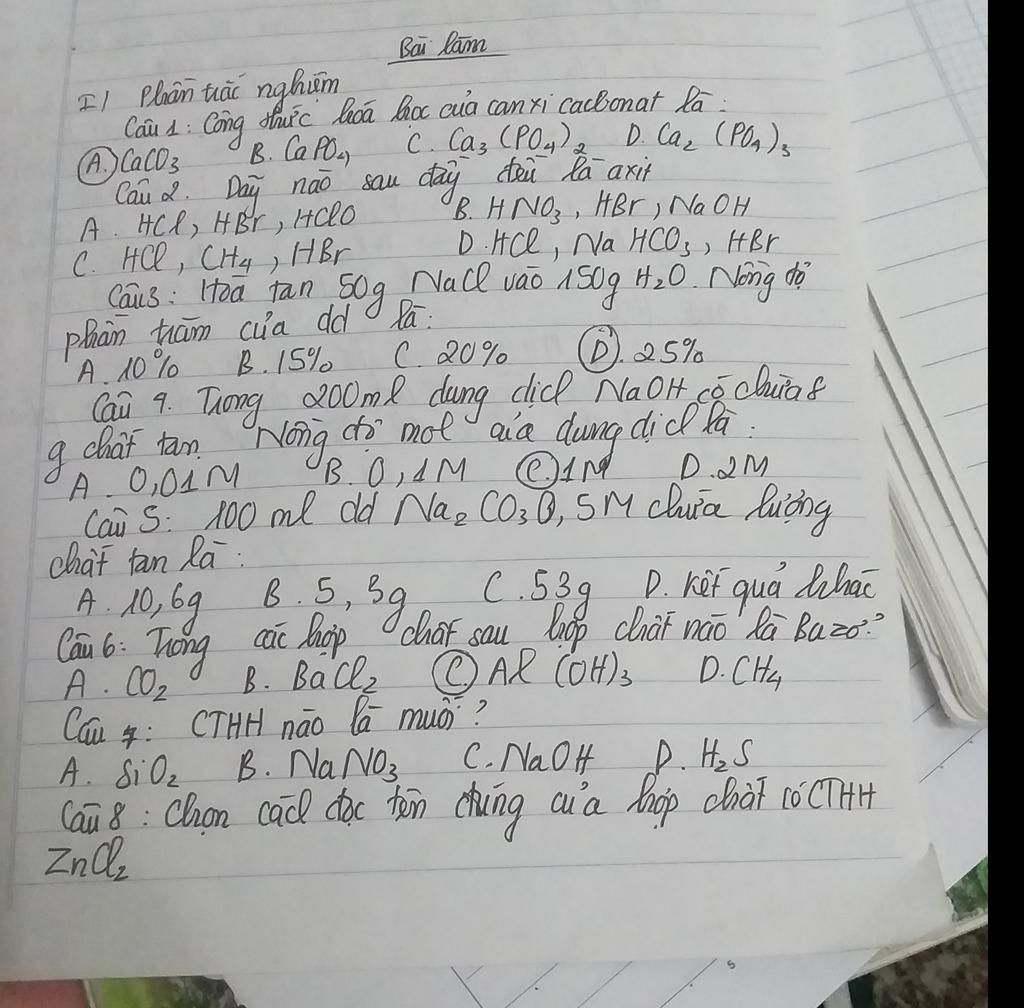 Bài làm
I/ Phần trắc nghiệm
Câu 1: Công thức hoá học của canxi cacbonat là:
A. CaCO3 B. CaPO4 C. Ca3(PO4)2 D. Ca2(PO4)3
Câu 2. Dãy nào sau đây đều là axit
A. HCl, HBr, HClO B. HNO3, HBr, NaOH
C. HCl, CH4, HBr D. HCl, NaHCO3, HBr
Câu 3: Hoà tan 50g NaCl vào 150g H2O. Nồng độ
phần trăm của dd là:
A. 10% B. 15% C. 20% D. 25%
Câu 4. Trong 200ml dung dịch NaOH có chứa 8
g chất tan. Nồng độ mol của dung dịch là:
A. 0,01M B. 0,1M C. 1M D. 2M
Câu 5: 100 ml dd Na2CO3 0,5M chứa lượng
chất tan là:
A. 10,6g B. 5,3g C. 53g D. Kết quả khác
Câu 6: Trong các hợp chất sau hợp chất nào là Bazơ?
A. CO2 B. BaCl2 C. Al(OH)3 D. CH4
Câu 7: CTHH nào là muối?
A. SiO2 B. NaNO3 C. NaOH D. H2S
Câu 8: Chọn cách đọc tên đúng của hợp chất có CTHH
ZnCl2